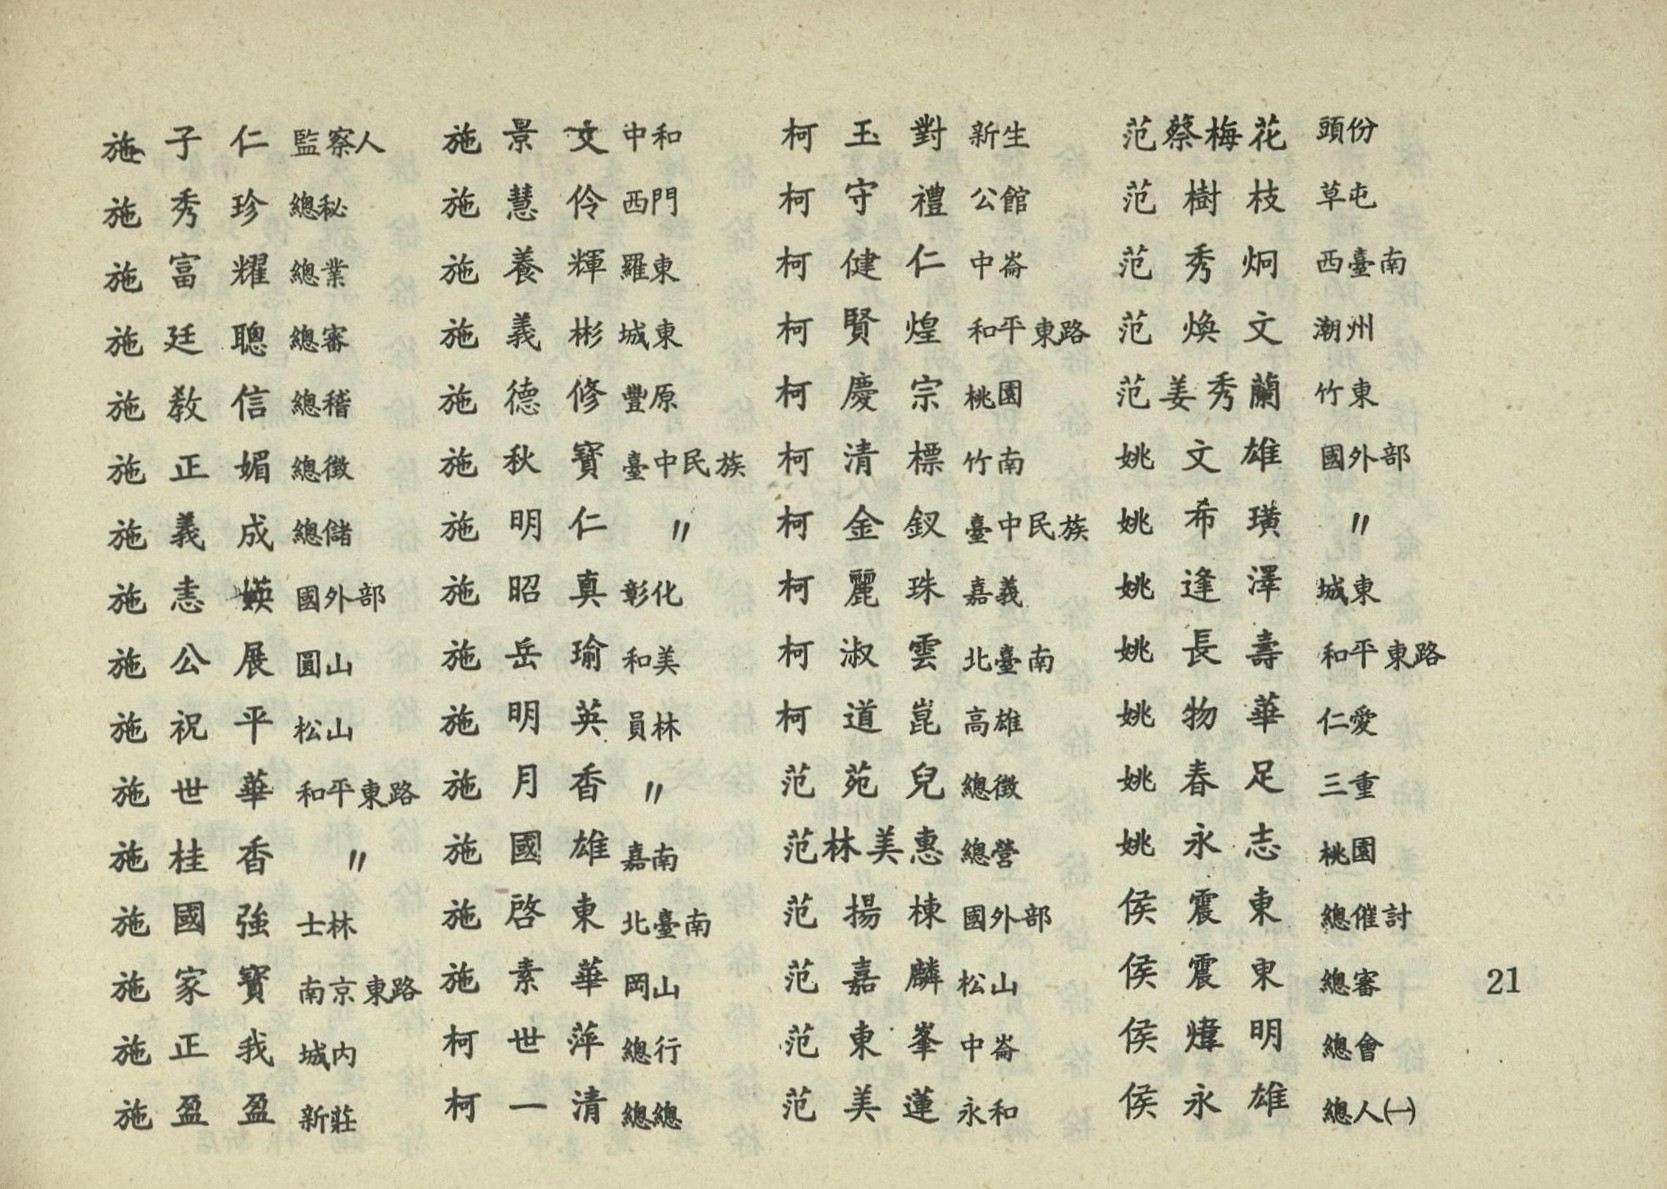 施子仁 監察人
施秀珍 總秘
施富耀 總業
施廷聰 總審
施教信 總稽
施正媚 總徵
施義成 總儲
施恚媖 國外部
施公展 圓山
施祝平 松山
施世華 和平東路
施桂香 〃
施國強 士林
施家寶 南京東路
施正我 城内
施盈盈 新莊
施景文 中和
施慧伶 西門
施養輝 羅東
施義彬 城東
施德修 豐原
施秋寶 臺中民族
施明仁 〃
施昭真 彰化
施岳瑜 和美
施明英 員林
施月香 〃
施國雄 嘉南
施啓東 北臺南
施素華 岡山
柯世萍 總行
柯一清 總總
柯玉對 新生
柯守禮 公館
柯健仁 中崙
柯賢煌 和平東路
柯慶宗 桃園
柯清標 竹南
柯金釵 臺中民族
柯麗珠 嘉義
柯淑雲 北臺南
柯道崑 高雄
范苑兒 總徵
范林美惠 總營
范揚棟 國外部
范嘉麟 松山
范東峯 中崙
范美蓮 永和
范蔡梅花 頭份
范樹枝 草屯
范秀炯 西臺南
范煥文 潮州
范姜秀蘭 竹東
姚文雄 國外部
姚希璜 〃
姚逢澤 城東
姚長壽 和平東路
姚物華 仁愛
姚春足 三重
姚永志 桃園
侯震東 總催討
侯震東 總審
侯煒明 總會
侯永雄 總人㈠
21